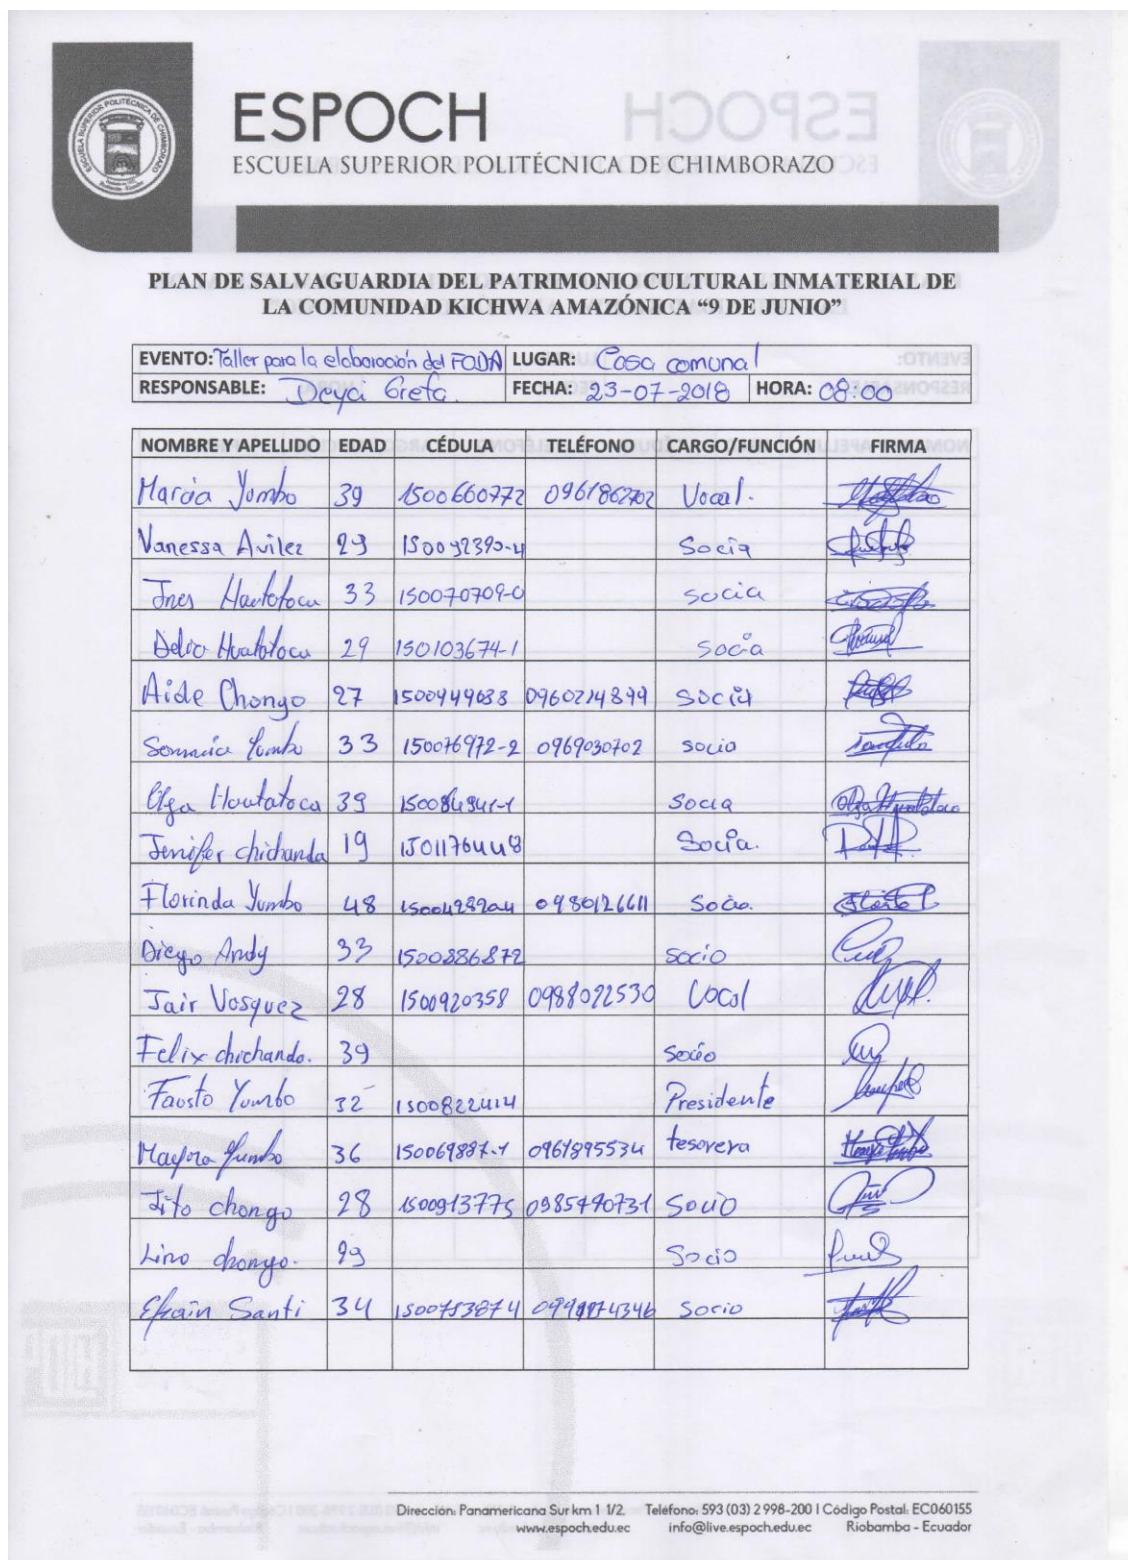 ESPOCH
ESCUELA SUPERIOR POLITÉCNICA DE CHIMBORAZO
PLAN DE SALVAGUARDIA DEL PATRIMONIO CULTURAL INMATERIAL DE
LA COMUNIDAD KICHWA AMAZÓNICA “9 DE JUNIO”
EVENTO: Taller para la elaboración del FODA LUGAR: Casa comunal
RESPONSABLE: Deya Grefa. FECHA: 23-07-2018 HORA: 08:00
NOMBRE Y APELLIDO EDAD CÉDULA TELÉFONO CARGO/FUNCIÓN FIRMA
Marcia Yumbo 39 1500660772 0961862702 Vocal.
Vanessa Avilez 29 150092390-4 Socia
Ines Huatatoca 33 150070709-0 socia
Delia Huatatoca 29 150103674-1 Socia
Aide Chongo 27 1500949688 0960214899 socia
Yumbo 33 150076972-2 0969030702 socio
Olga Huatatoca 39 150084941-1 Socia Olga Huatatoca
Jenifer chichanda 19 1501176448 Socia.
Florinda Yumbo 48 1500428204 0980126611 Socio.
Diego Andy 33 1500886872 socio
Jair Vasquez 28 1500920358 0988022530 Vocal
Felix chichanda. 39 socio
Fausto Yumbo 32 1500822414 Presidente
Mayra Yumbo 36 150069887-1 0961895534 tesorera
Tito chongo 28 1500913775 0985490731 Socio
Lino chongo. 29 Socio
Efraín Santi 34 1500753874 Socio
Dirección: Panamericana Sur km 1 1/2 Teléfono: 593 (03) 2 998-200 | Código Postal: EC060155
www.espoch.edu.ec info@live.espoch.edu.ec Riobamba - Ecuador